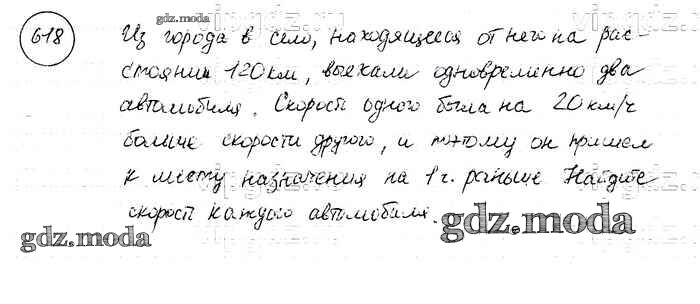 gdz.moda
618 Из города в село, находящееся от него на рас-
стоянии 120 км, выехали одновременно два
автомобиля. Скорость одного была на 20 км/ч
больше скорости другого, и поэтому он пришел
к месту назначения на 1 ч. раньше Найдите
скорость каждого автомобиля.
gdz.moda
gdz.moda